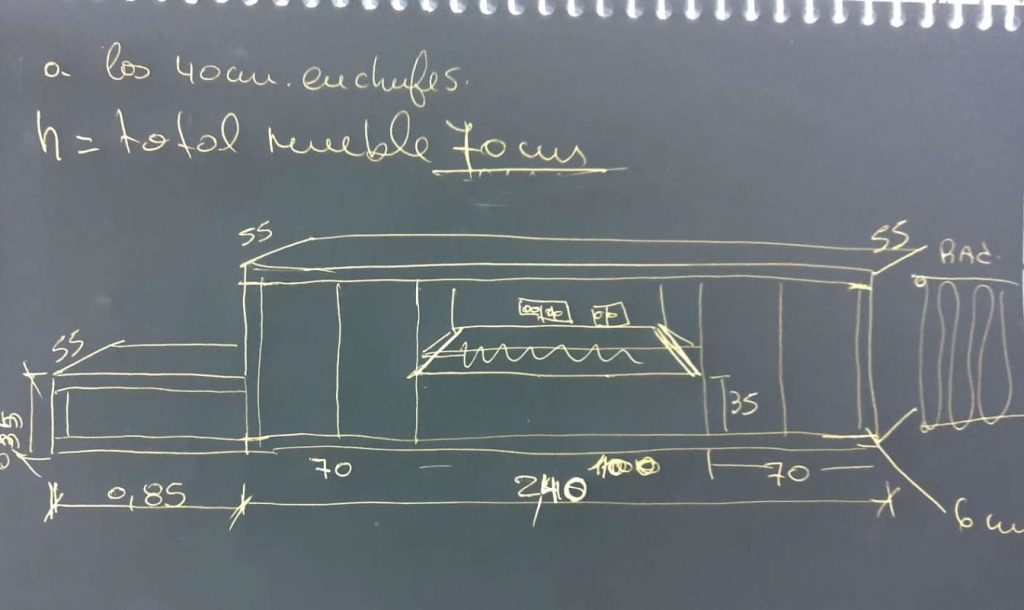 a los 40cm. enchufes.
h = total mueble 70 cms
55
55
RAd.
55
35
70
100
70
0,85
240
6 cm